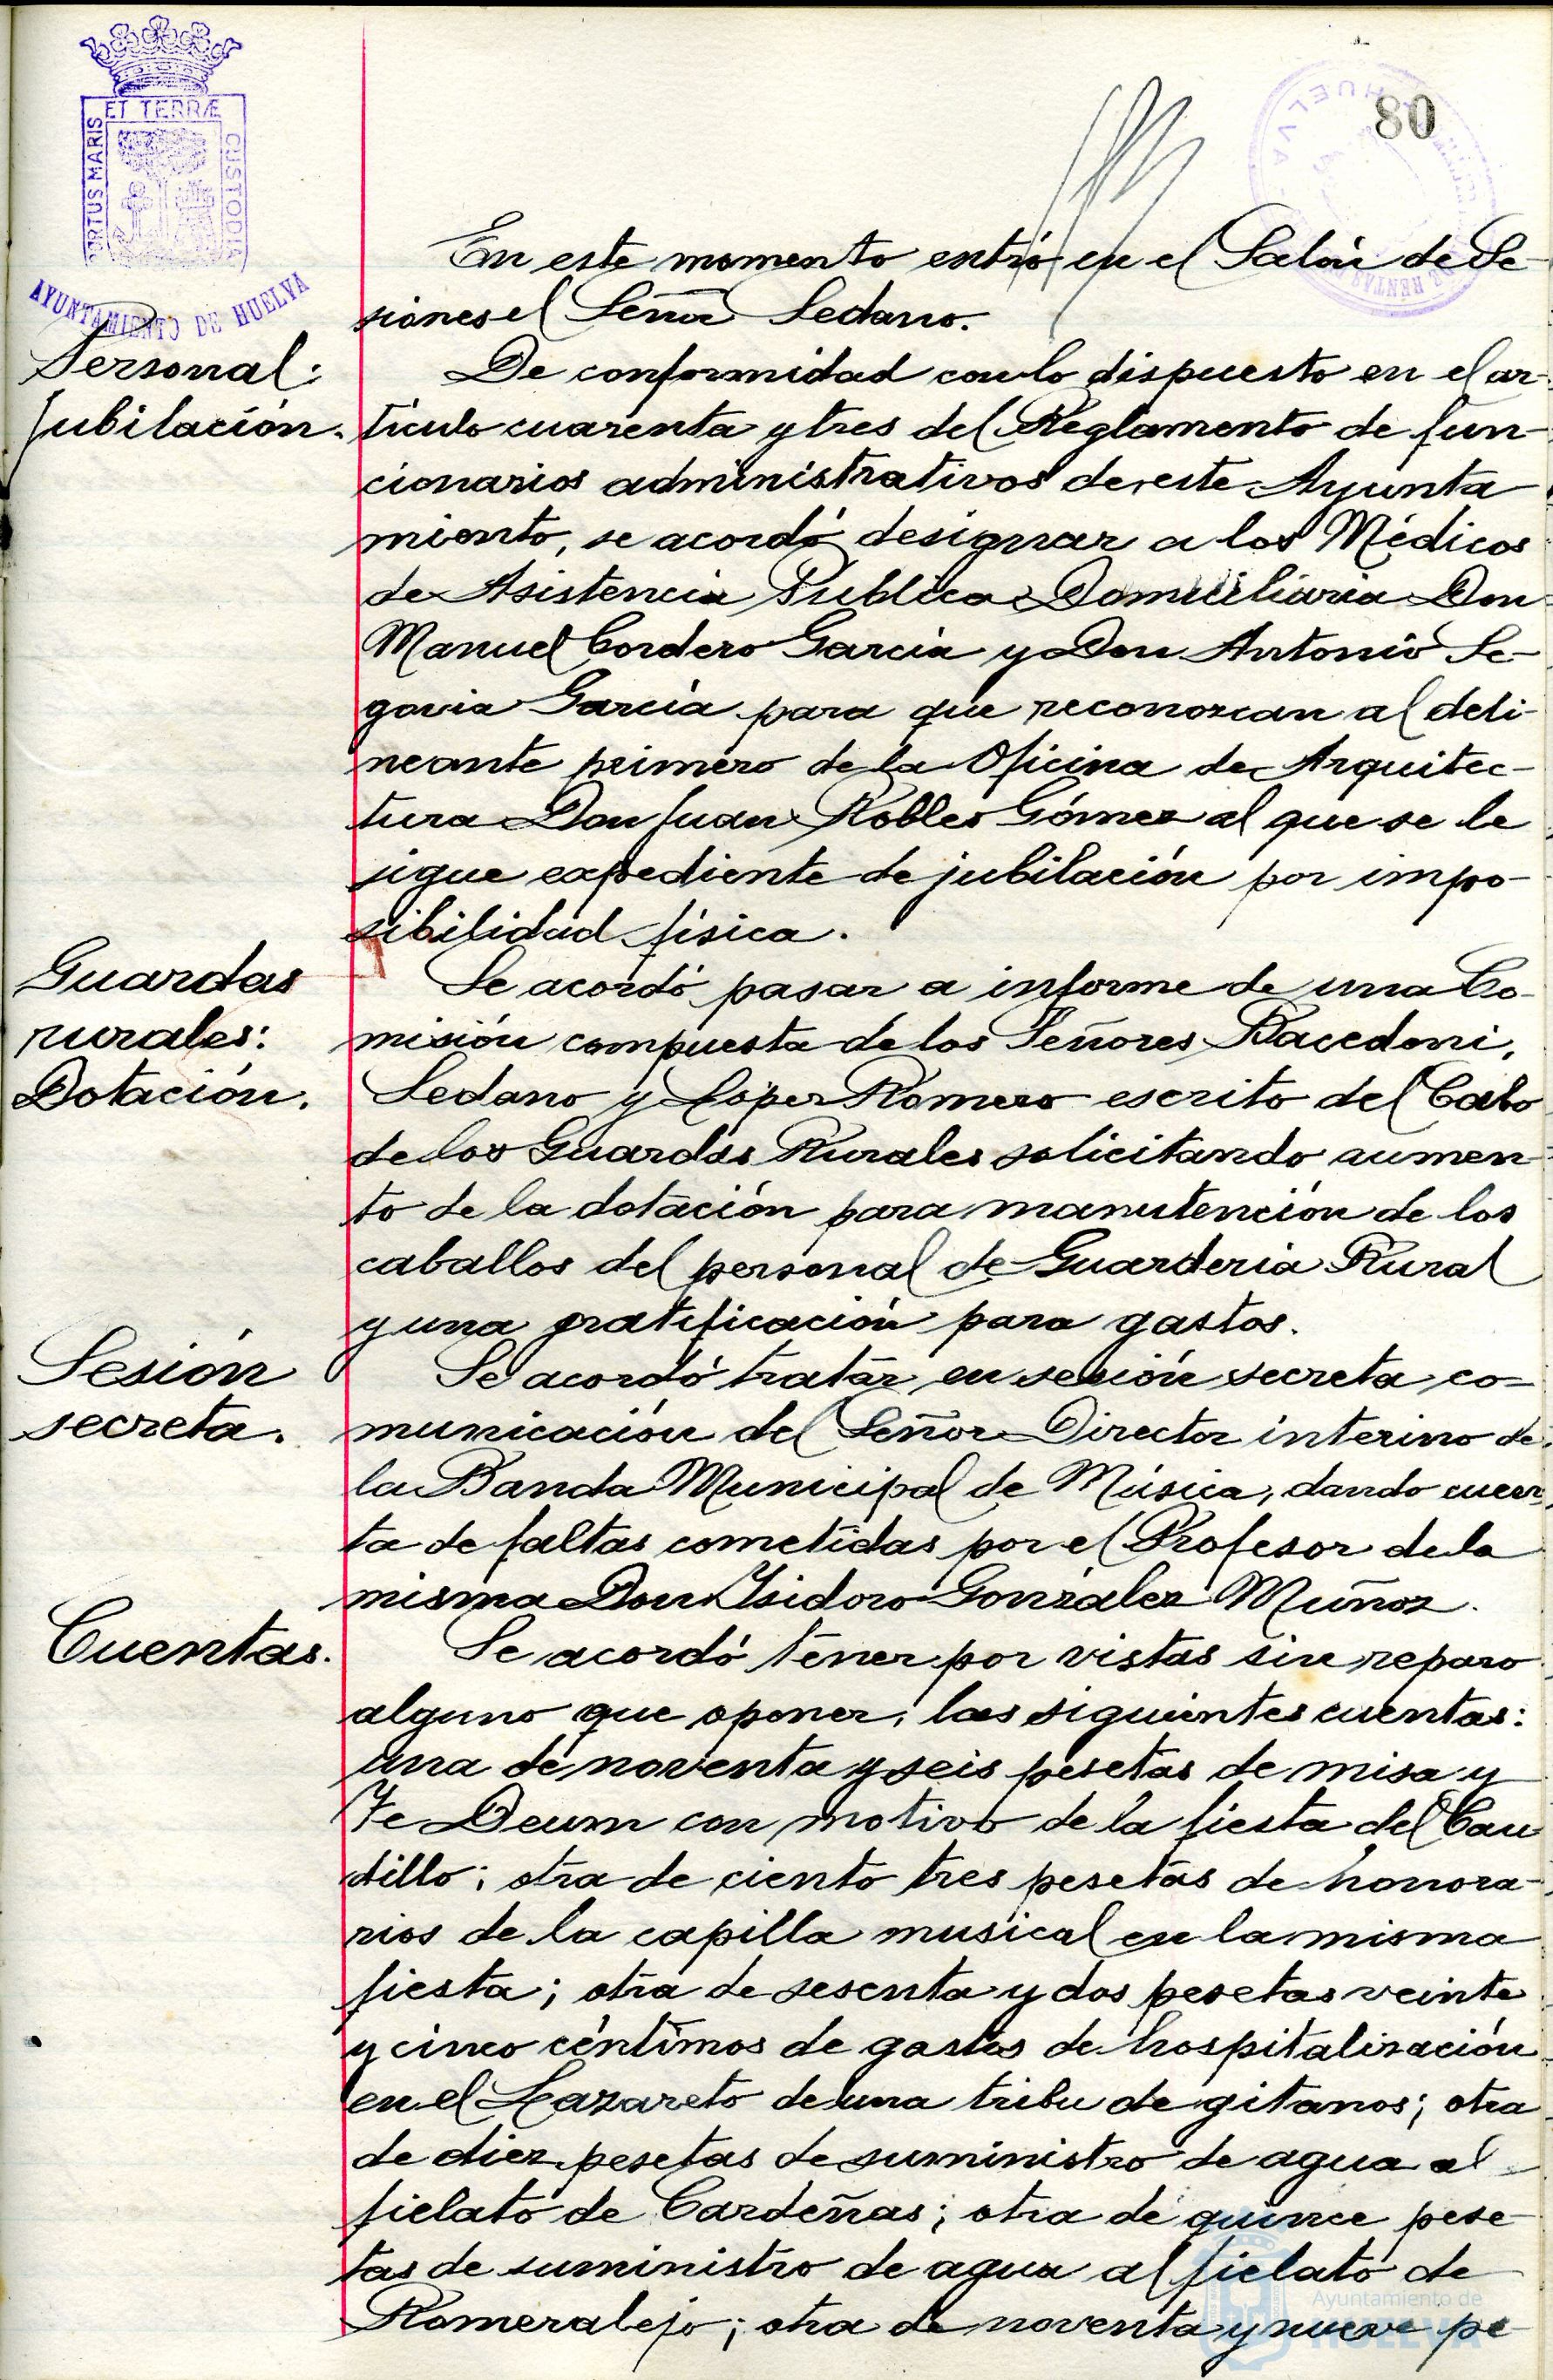 ET TERRÆ
PORTUS MARIS
CUSTODIA
AYUNTAMIENTO DE HUELVA
80
HUELVA
RENTAS
En este momento entró en el Salón de Se-
siones el Señor Sedano.
Personal:
Jubilación.
De conformidad con lo dispuesto en el ar-
tículo cuarenta y tres del Reglamento de fun-
cionarios administrativos de este Ayunta
miento, se acordó designar a los Médicos
de Asistencia Publica Domiciliaria Don
Manuel Cordero García y Don Antonio Se-
govia García para que reconozcan al deli-
neante primero de la Oficina de Arquitec-
tura Don Juan Robles Gómez al que se le
sigue expediente de jubilación por impo-
sibilidad física.
Guardas
rurales:
Dotación.
Se acordó pasar a informe de una Co-
misión compuesta de los Señores Bacedoni,
Sedano y López Romero escrito del Cabo
de los Guardas Rurales solicitando aumen-
to de la dotación para manutención de los
caballos del personal de Guarderia Rural
y una gratificación para gastos.
Sesión
secreta.
Se acordó tratar en sesión secreta co-
municación del Señor Director interino de
la Banda Municipal de Música, dando cuen-
ta de faltas cometidas por el Profesor de la
misma Don Isidoro González Muñoz.
Cuentas.
Se acordó tener por vistas sin reparo
alguno que oponer, las siguientes cuentas:
una de noventa y seis pesetas de misa y
Te Deum con motivo de la fiesta del Cau
dillo; otra de ciento tres pesetas de honora-
rios de la capilla musical en la misma
fiesta; otra de sesenta y dos pesetas veinte
y cinco céntimos de gastos de hospitalización
en el Lazareto de una tribu de gitanos; otra
de diez pesetas de suministro de agua al
fielato de Cardeñas; otra de quince pese-
tas de suministro de agua al fielato de
Romeralejo; otra de noventa y nueve pe-
Ayuntamiento de
HUELVA